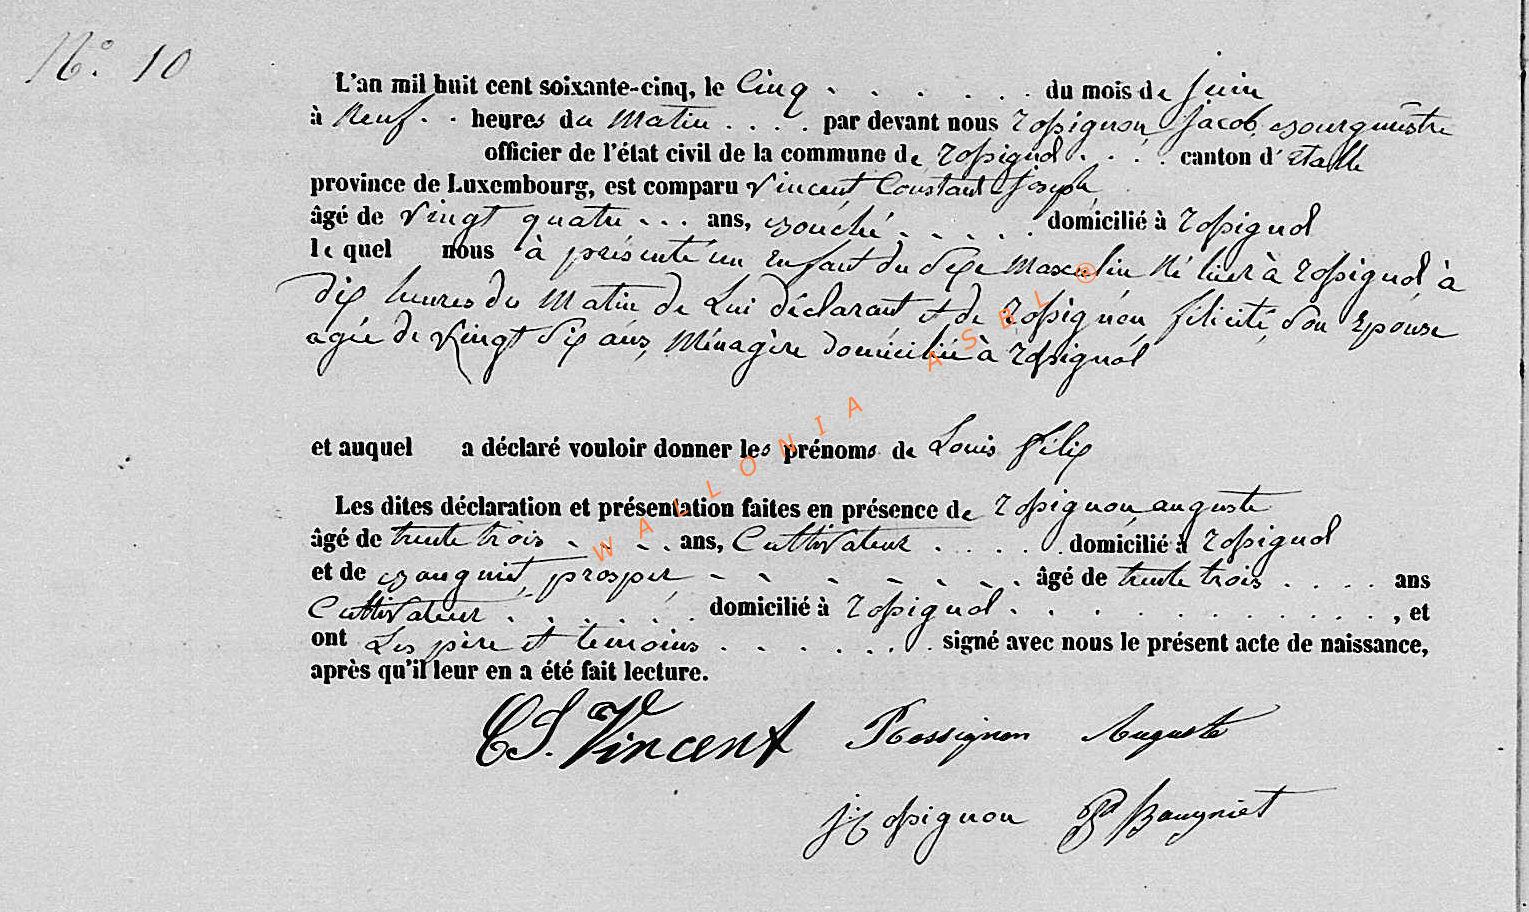 N.° 10
L'an mil huit cent soixante-cinq, le Cinq . . . . . . du mois de juin
à Neuf . . heures du Matin . . . . par devant nous Rossignon, Jacob, Bourgmestre
officier de l'état civil de la commune de Rossignol . . . . canton d'Etalle
province de Luxembourg, est comparu Vincent Constant Joseph
âgé de Vingt quatre . . . ans, domicilié à Rossignol
lequel nous à présenté un Enfant du Sexe Masculin Né hier à Rossignol à
dix heures du Matin de Lui déclarant et de Rossignon, félicité, son Epouse
agée de Vingt Six ans, Ménagère domiciliée à Rossignol
et auquel a déclaré vouloir donner les prénoms de Louis félix
Les dites déclaration et présentation faites en présence de Rossignon, auguste
âgé de trente trois . . . . ans, Cultivateur . . . . . domicilié à Rossignol
et de Baugniet, prosper, . . . . . . . âgé de trente trois . . . . ans
Cultivateur . . . . . . domicilié à Rossignol . . . . . . . . . . , et
ont Les père et temoins . . . . . . signé avec nous le présent acte de naissance,
après qu'il leur en a été fait lecture.
CJ. Vincent Rossignon Auguste
J Rossignon Pr Baugniet
WALLONIA ASBL ®